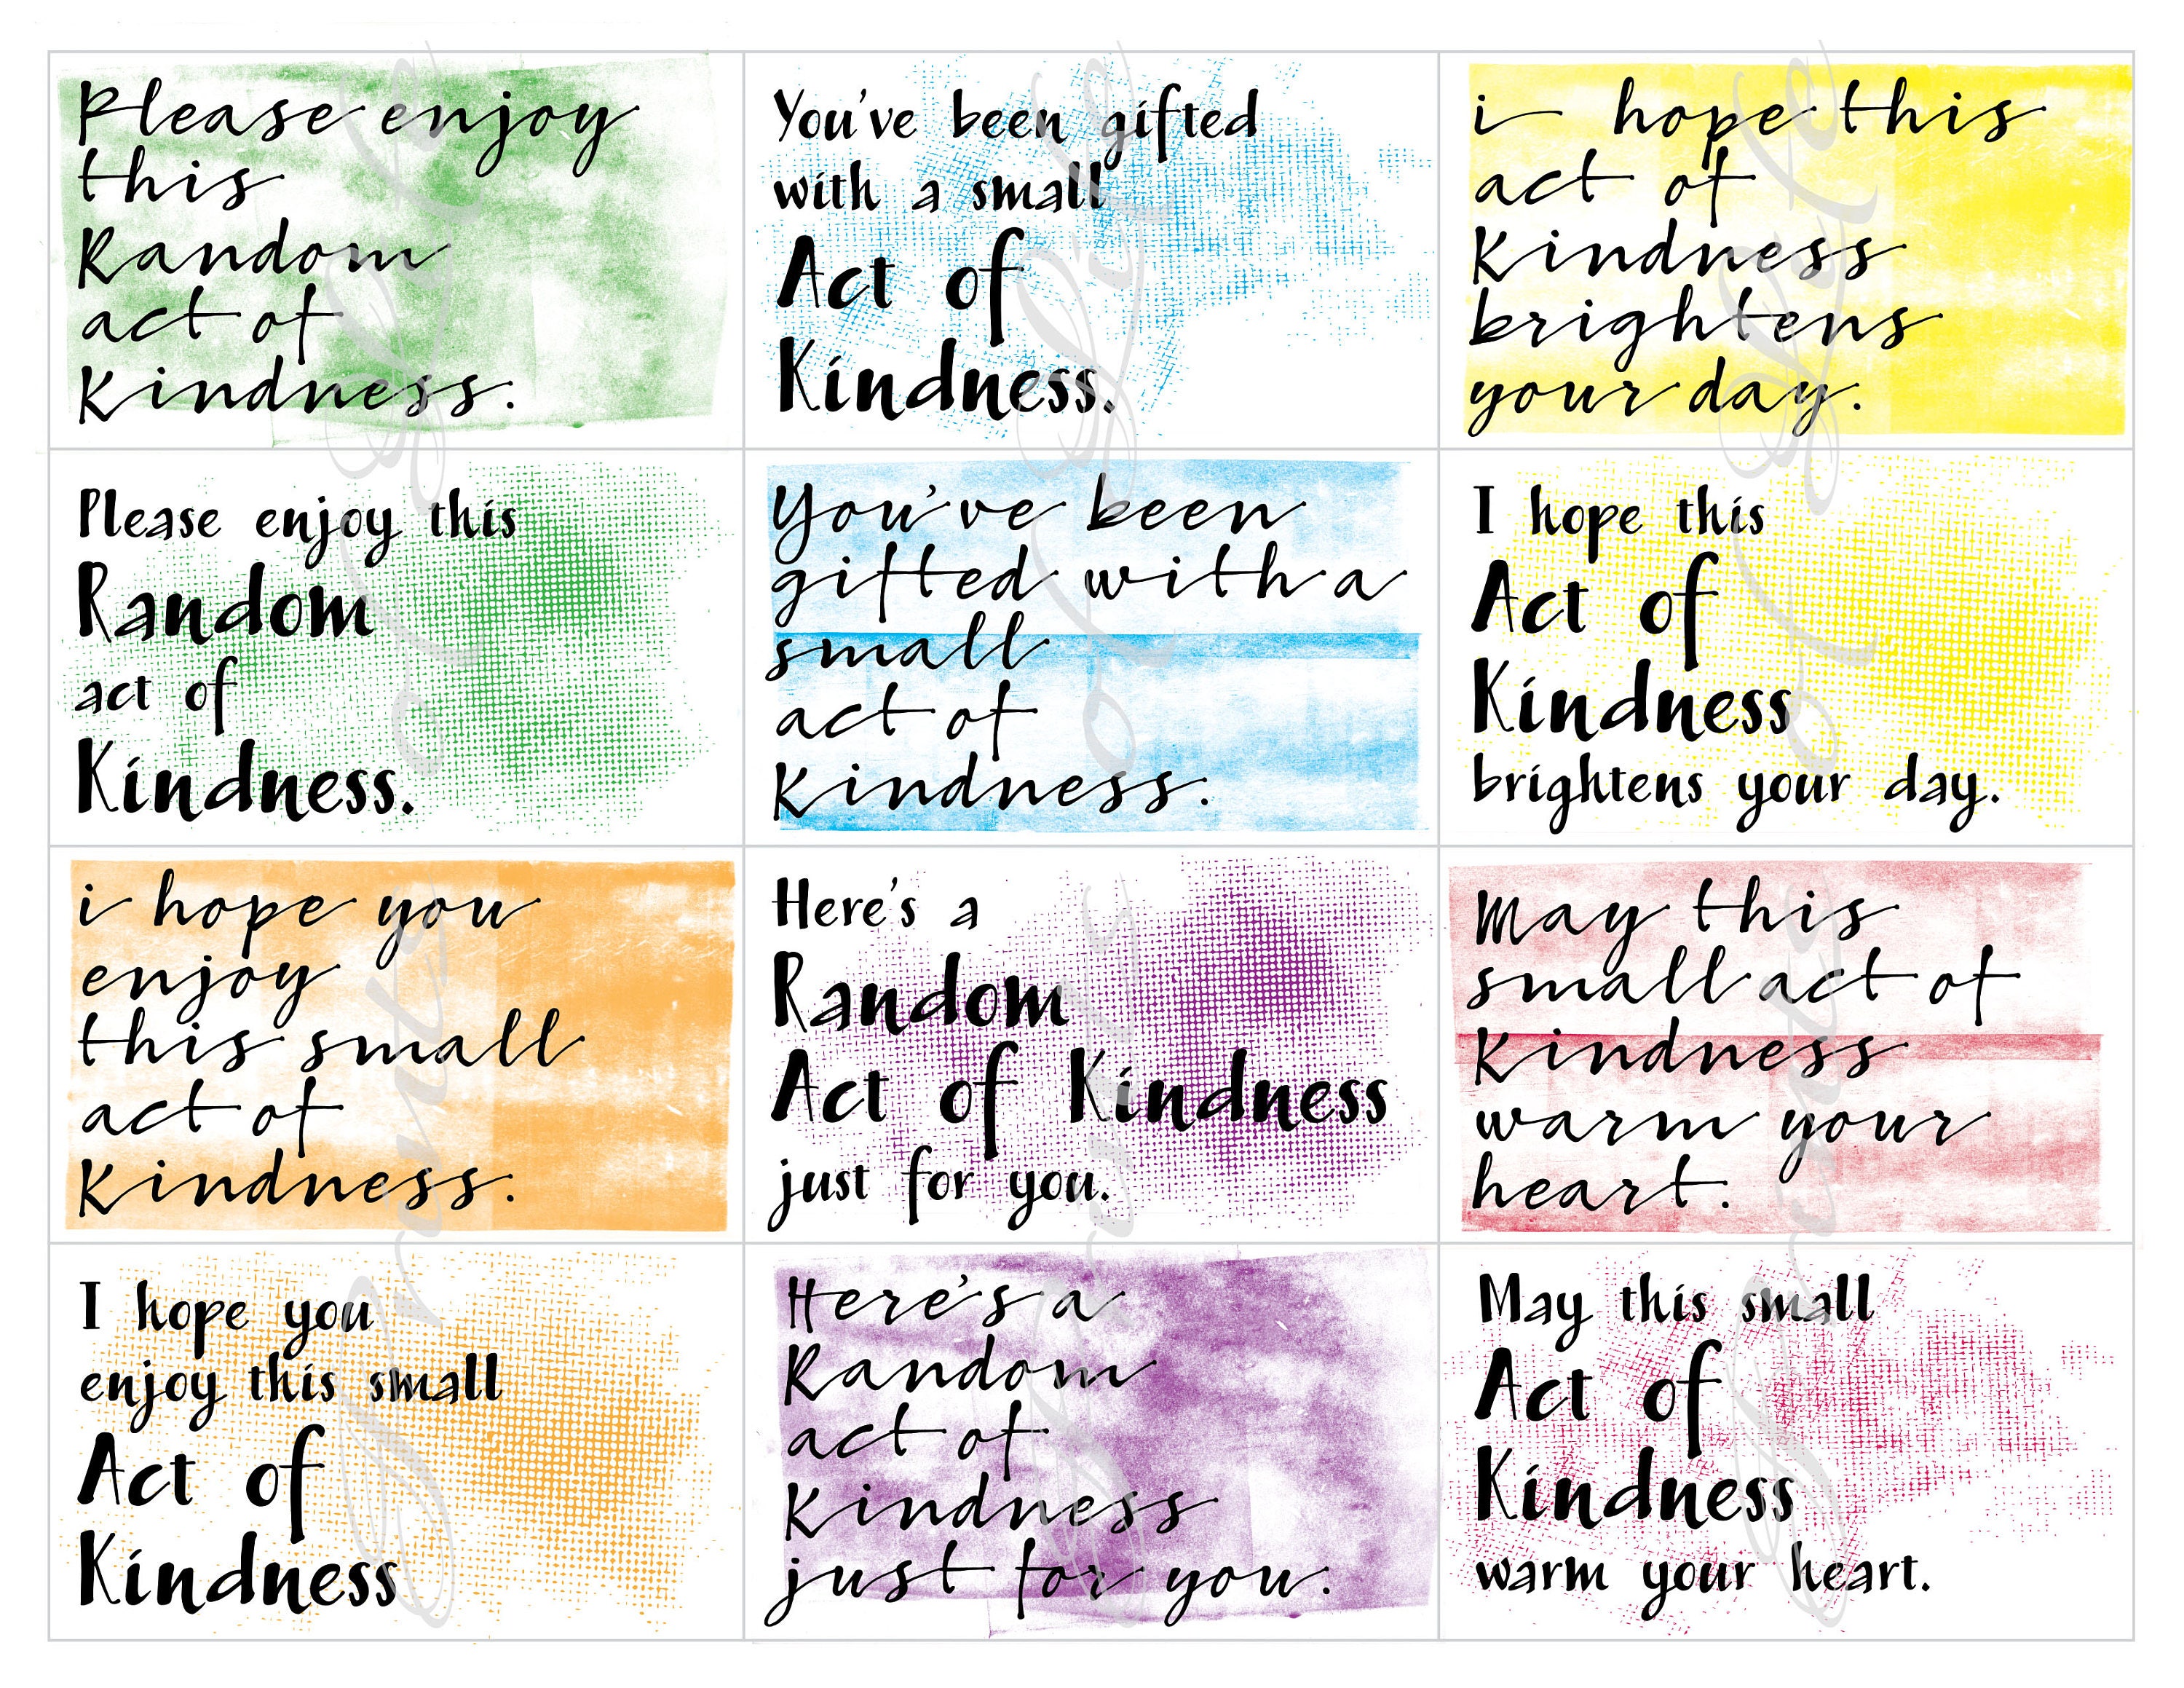 Please enjoy
this
Random
act of
Kindness.
You've been gifted
with a small
Act of
Kindness.
i hope this
act of
Kindness
brightens
your day.
Please enjoy this
Random
act of
Kindness.
You've been
gifted with a
small
act of
Kindness.
I hope this
Act of
Kindness
brightens your day.
i hope you
enjoy
this small
act of
Kindness.
Here's a
Random
Act of Kindness
just for you.
May this
small act of
Kindness
warm your
heart.
I hope you
enjoy this small
Act of
Kindness
Here's a
Random
act of
Kindness
just for you.
May this small
Act of
Kindness
warm your heart.